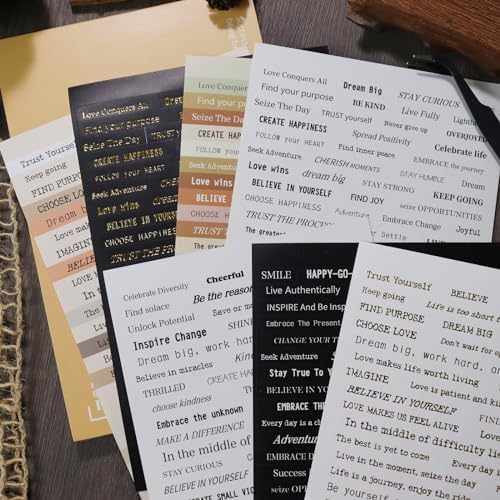 Trust Yourself
Keep going
FIND PURPO
CHOOSE LO
Dream b
LOVE MA
Love ma
IMAGIN
BELIEVE
LOVE
In th
The
Love Conquers All
Find your purpose
Seize The Day
CREATE HAPPINESS
FOLLOW your HEART
Seek Adventure
Love wins
BELIEVE IN YOURSELF
CHOOSE HAPPINESS
TRUST THE PROCES
Love Conquers All
Find your purpo
Seize The Day
CREATE HAPPI
FOLLOW your H
Seek Adventure
Love wins
BELIEVE
CHOOSE HAPPINE
TRUST THE
The greatest
Love Conquers All Dream Big STAY CURIOUS
Find your purpose BE KIND Live Fully Lighth
Seize The Day TRUST yourself Never give up OVERJOYED
CREATE HAPPINESS Spread Positivity Celebrate life
FOLLOW your HEART Find inner peace EMBRACE the journey
Seek Adventure CHERISH MOMENTS STAY HUMBLE Dream
Love wins dream big STAY STRONG KEEP GOING
BELIEVE IN YOURSELF FIND JOY seize OPPORTUNITIES
CHOOSE HAPPINESS Embrace Change Joyful
TRUST THE PROCES
The great Settle
Cheerful
Celebrate Diversity Be the reason
Find solace Save or mo
Unlock Potential SHINE
Inspire Change
Dream big, work har
Believe in miracles Kin
THRILLED CREATE HAP
choose kindness
Embrace the unknown
MAKE A DIFFERENCE
In the middle of
STAY CURIOUS
BELIEVE IN YOURSELF
CREATE SMALL VIC
SMILE HAPPY-GO-
Live Authentically
INSPIRE And Be Insp
Embrace The Present
CHANGE YOUR T
Seek Adventure
Stay True To Y
BELIEVE IN YOUR
EMBRACE THE
Every day is a ch
Adventu
Embrace
DREAM BIG
Success
seize OPPOR
Trust Yourself BELIEVE
Keep going Life is too short
FIND PURPOSE DREAM BIG
CHOOSE LOVE Don't wait for o
Dream big, work hard, an
Love makes life worth living
IMAGINE Love is patient and ki
BELIEVE IN YOURSELF FIND
LOVE MAKES US FEEL ALIVE Love
In the middle of difficulty li
The best is yet to come Every day
Live in the moment, seize the day
Life is a journey, enjoy the ride
Be yourself